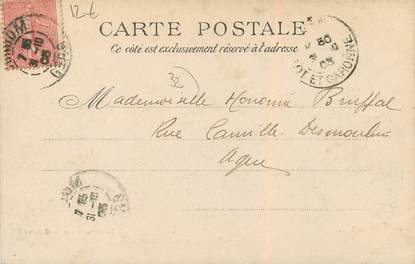 12 €
CARTE POSTALE
Ce côté est exclusivement réservé à l'adresse
LOT ET GARONNE
32
Mademoiselle Honorine Bruffal
Rue Camille Desmoulins
Agen